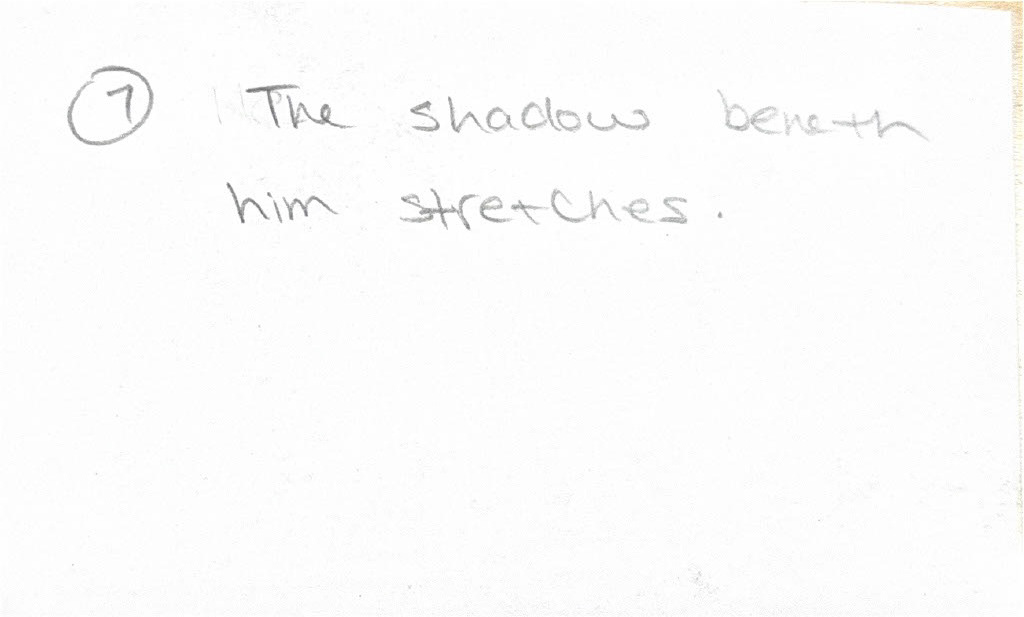 7 The shadow beneth
him stretches.